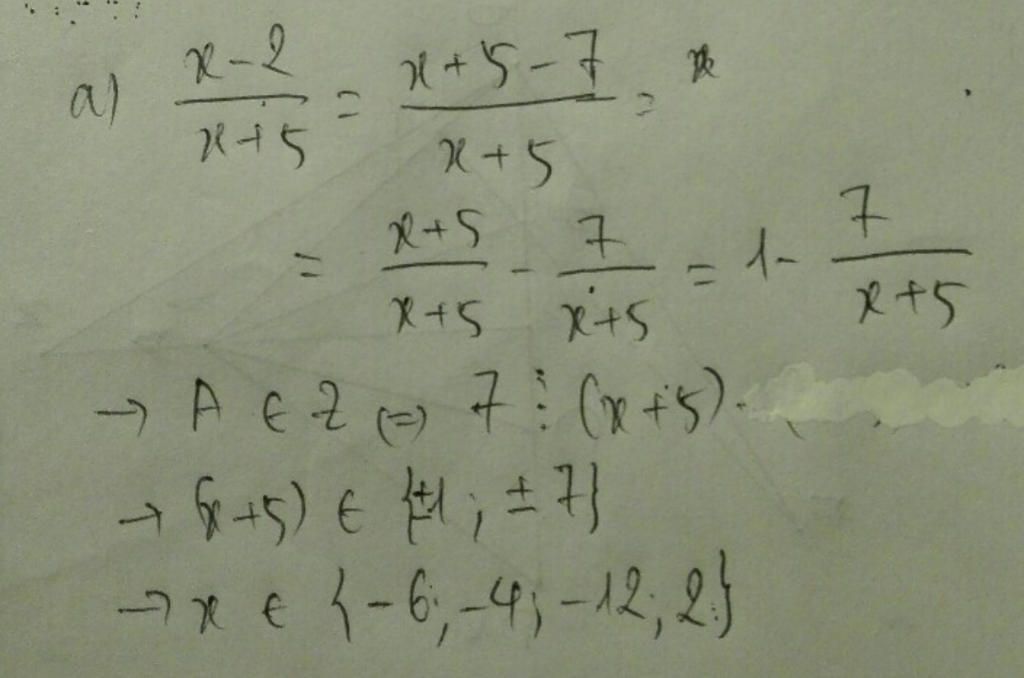 a) \frac{x-2}{x+5} = \frac{x+5-7}{x+5} =
= \frac{x+5}{x+5} - \frac{7}{x+5} = 1 - \frac{7}{x+5}
→ A ∈ Z (=) 7 ⋮ (x+5).
→ (x+5) ∈ {±1; ±7}
→ x ∈ {-6; -4; -12; 2}